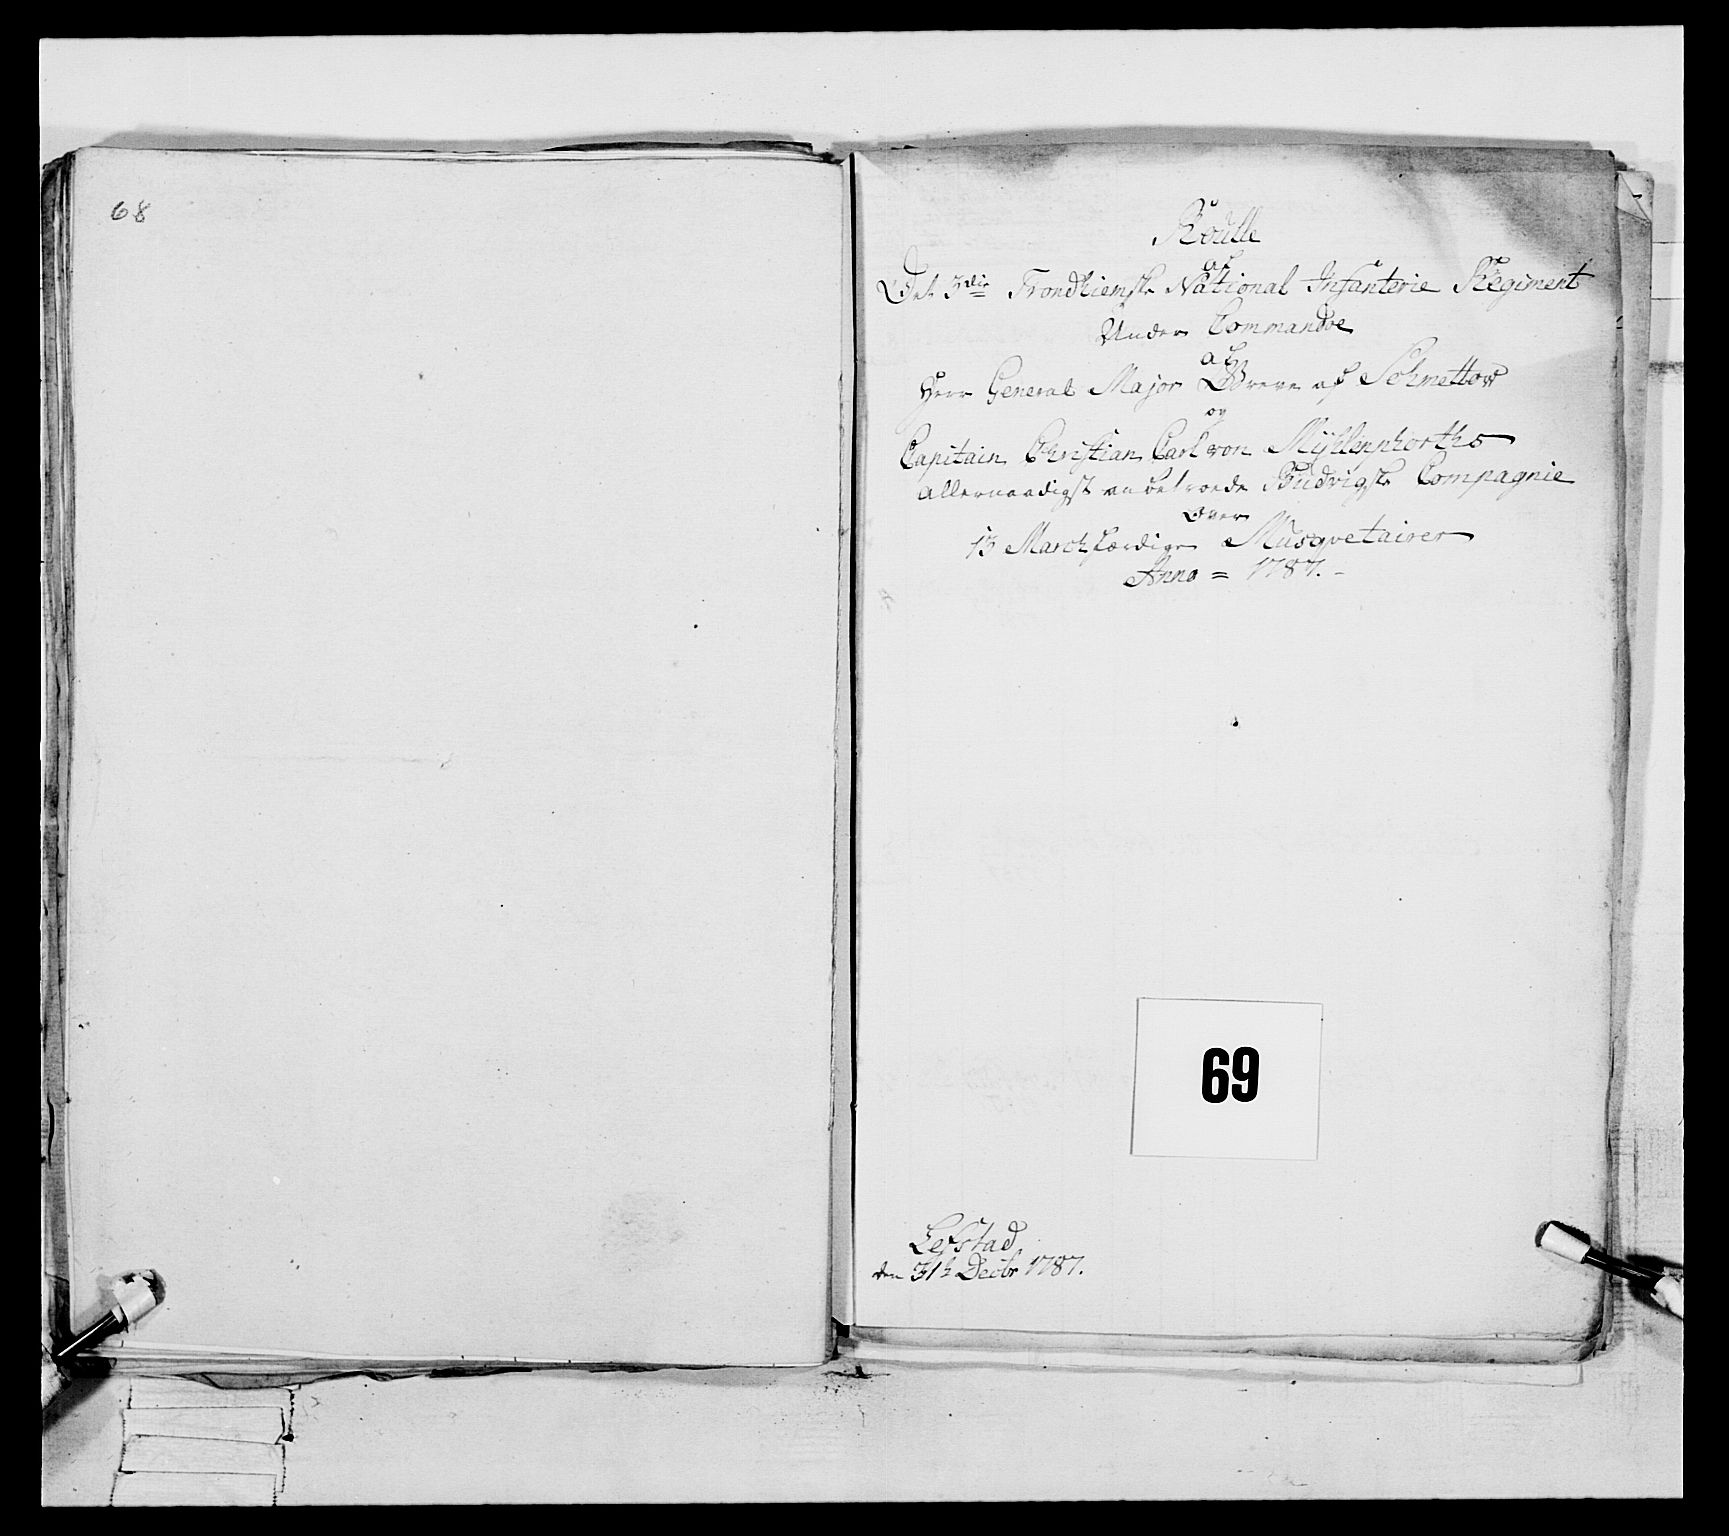 68
Roulle
af
Det 3die Trondhiemske National Infanterie Regiment
Under Commandoe
af
Herr General Major Greve af Schmettow
og
Capitain Christian Carl von Mÿhlenphorths
allernaadigst anbetroede Budvigske Compagnie
Over
13 Marchfærdige Musqvetairer
Anno = 1787. -
69
Lefstad
den 31te Decbr 1787.